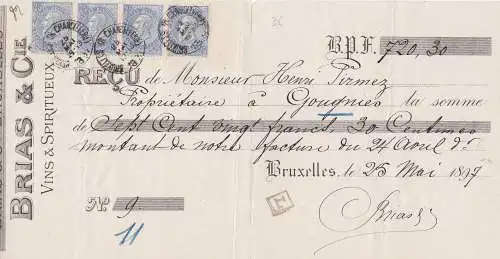 B.P.F. 720,30
REÇU de Monsieur Henri Pirmez
Propriétaire à Gougnies la somme
de Sept Cent vingt francs, 30 Centimes
montant de notre facture du 24 Avril dr
Bruxelles, le 25 Mai 1897
No. 9
11
Brias
BRIAS & CIE
VINS & SPIRITUEUX